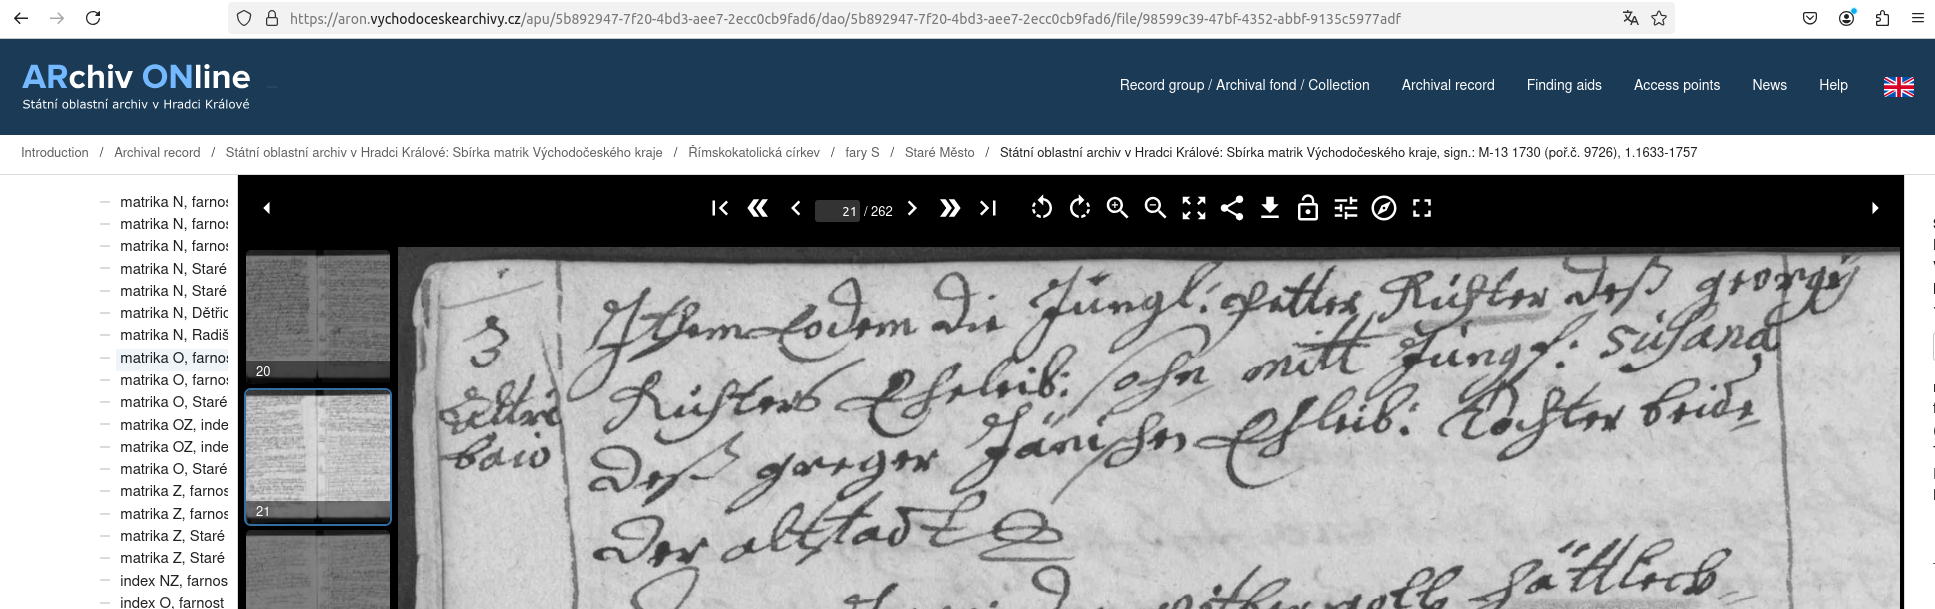 https://aron.vychodoceskearchivy.cz/apu/5b892947-7f20-4bd3-aee7-2ecc0cb9fad6/dao/5b892947-7f20-4bd3-aee7-2ecc0cb9fad6/file/98599c39-47bf-4352-abbf-9135c5977adf
ARchiv ONline
Státní oblastní archiv v Hradci Králové
Record group / Archival fond / Collection
Archival record
Finding aids
Access points
News
Help
Introduction / Archival record / Státní oblastní archiv v Hradci Králové: Sbírka matrik Východočeského kraje / Římskokatolická církev / fary S / Staré Město / Státní oblastní archiv v Hradci Králové: Sbírka matrik Východočeského kraje, sign.: M-13 1730 (poř.č. 9726), 1.1633-1757
matrika N, farnos
matrika N, farnos
matrika N, farnos
matrika N, Staré
matrika N, Staré
matrika N, Dětřic
matrika N, Radiš
matrika O, farnos
matrika O, farnos
matrika O, Staré
matrika OZ, inde
matrika OZ, inde
matrika O, Staré
matrika Z, farnos
matrika Z, farnos
matrika Z, Staré
matrika Z, Staré
index NZ, farnos
index O, farnost
21 / 262
20
21
3
Ithem Eodem die Jüngl: Petter Richter deß georgÿ
Richters Eheleib: sohn mitt Jüngf: Susana
deß greger Jänischen Ehleib: Tochter beide
der altstadt